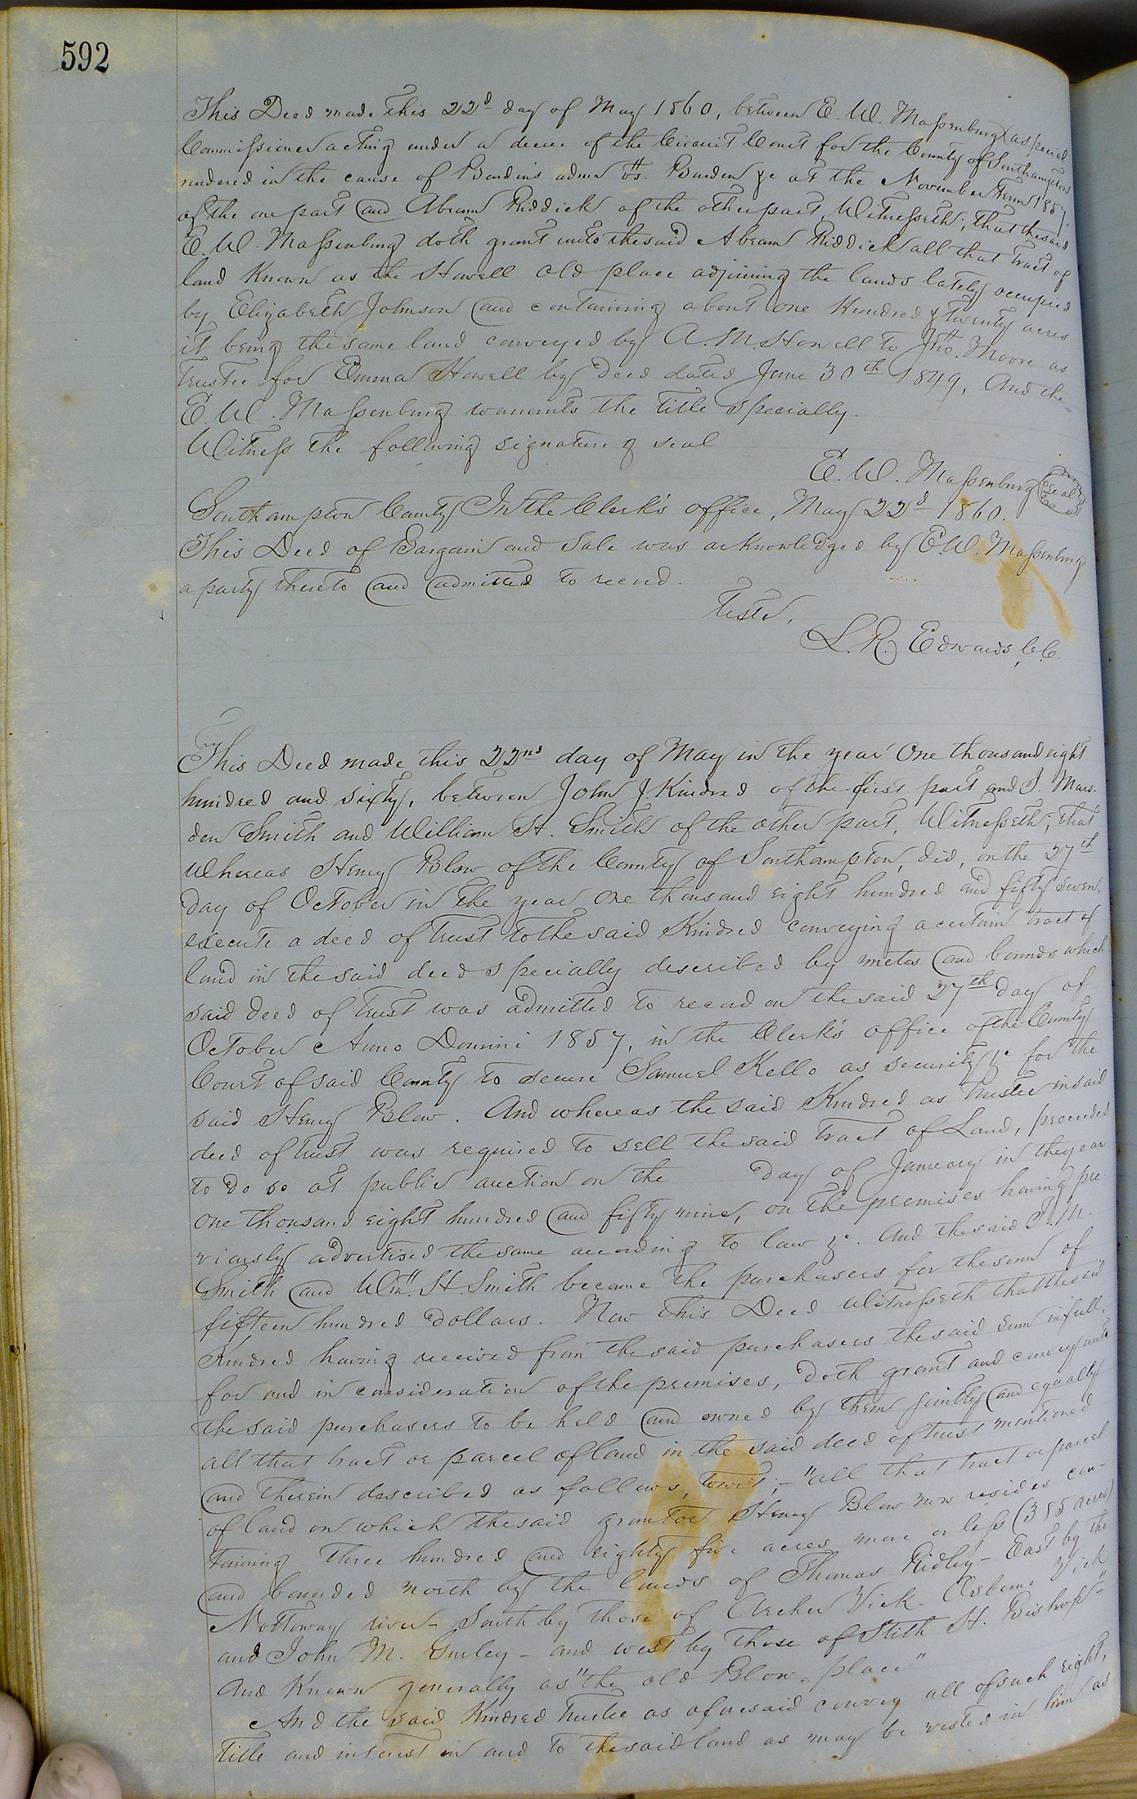 592
This Deed made this 22d day of May 1860, between E. W. Massenburg (as special
Commissioner acting under a decree of the Circuit Court for the County of Southampton
rendered in the cause of Burden's admr vs. Burden &c at the November Term 1857)
of the one part and Abram Riddick of the other part, Witnesseth, that the said
E. W. Massenburg doth grant unto the said Abram Riddick all that tract of
land known as the Howell old place adjoining the lands lately occupied
by Elizabeth Johnson and containing about one hundred & twenty acres
it being the same land conveyed by A. M. Howell to Jno. Moore as
trustee for Emma Howell by Deed dated June 30th 1849, And the
E. W. Massenburg warrants the title specially.
Witness the following signature & seal
E. W. Massenburg (seal)
Southampton County In the Clerk's office, May 22d 1860.
This Deed of Bargain and Sale was acknowledged by E. W. Massenburg
a party thereto and admitted to record.
Teste,
L. R. Edwards, C.C.
This Deed made this 22nd day of May in the year One thousand eight
hundred and sixty, between John J Kindred of the first part and J. Mars-
den Smith and William H. Smith of the other part, Witnesseth; that
Whereas Henry Blow of the County of Southampton, did, on the 27th
day of October in the year One thousand eight hundred and fifty seven,
execute a deed of trust to the said Kindred conveying a certain tract of
land in the said deed specially described by metes and bounds which
said deed of trust was admitted to record on the said 27th day of
October Anno Domini 1857, in the Clerk's office of the County
Court of said County to secure Samuel Kello as security &c for the
said Henry Blow. And whereas the said Kindred as trustee in said
deed of trust was required to sell the said tract of Land, proceeded
to do so at public auction on the day of January in the year
One thousand eight hundred and fifty nine, on the premises having pre-
viously advertised the same according to law &c. And the said J. M.
Smith and Wm. H. Smith became the purchasers for the sum of
fifteen hundred dollars. Now this Deed Witnesseth that the said
Kindred having received from the said purchasers the said sum in full,
for and in consideration of the premises, doth grant and convey unto
the said purchasers to be held and owned by them jointly and equally
all that tract or parcel of land in the said deed of trust mentioned
and therein described as follows, towit; - "all that tract or parcel
of land on which the said grantor Henry Blow now resides con-
taining three hundred and eighty five acres more or less (385 acres)
and bounded north by the lands of Thomas Ridley - East by the
Nottoway river - South by those of Archer Vick - Osborne Vick
and John M. Gurley - and west by those of Stith H. Bishop" -
And Known generally as "the old Blow place"
And the said Kindred trustee as aforesaid convey all of such right,
title and interest in and to the said land as may be vested in him as